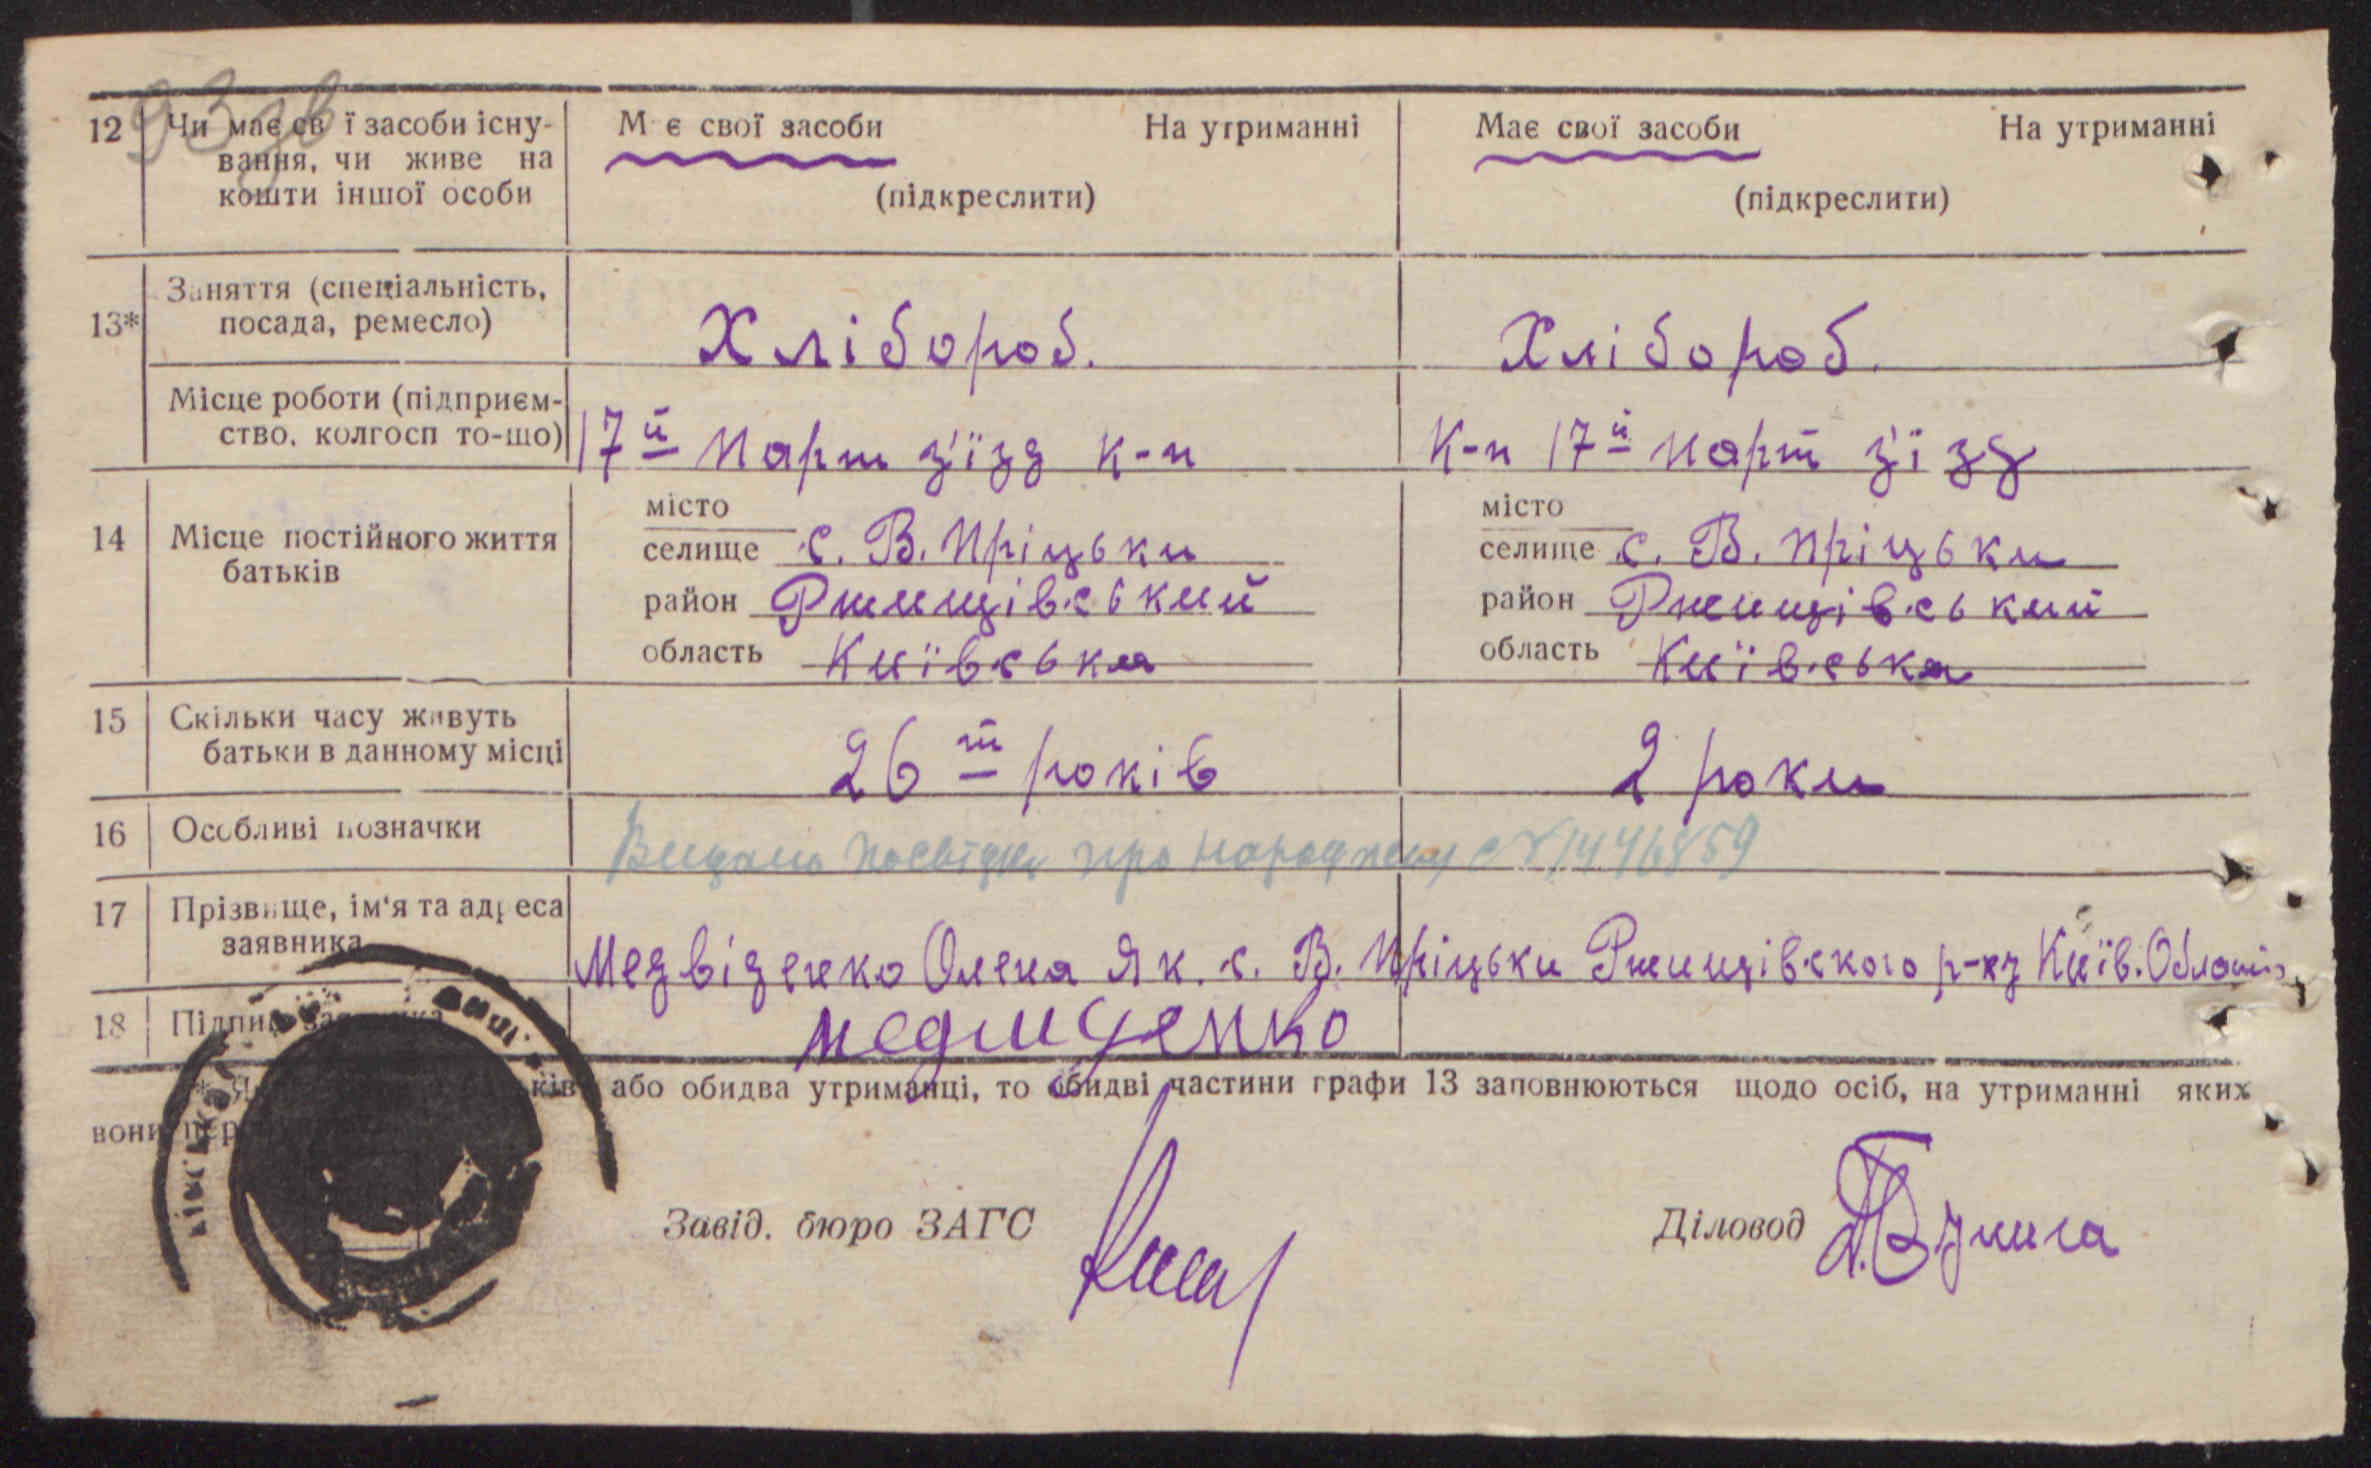 93
12 Чи має св ї засоби існу-
вання, чи живе на
кошти іншої особи
М є свої засоби На утриманні
(підкреслити)
Має свої засоби На утриманні
(підкреслити)
13* Заняття (спеціальність,
посада, ремесло)
Хлібороб.
Хлібороб.
Місце роботи (підприєм-
ство, колгосп то-що)
17й Парт з'їзд к-п
К-п 17й парт з'їзд
14 Місце постійного життя
батьків
місто
селище с. В. Пріцьки
район Ржищівський
область Київська
місто
селище с. В. Пріцьки
район Ржищівський
область Київська
15 Скільки часу живуть
батьки в данному місці
26 ть років
2 роки
16 Особливі позначки
Видано посвідку про народжен 1446859
17 Прізвище, ім'я та адреса
заявника
Медвіденко Олена Як. с. В. Пріцьки Ржищівского р-ну Київ. Області
18 Підпис заявника
ків або обидва утриманці, то обидві частини графи 13 заповнюються щодо осіб, на утриманні яких
вони пер
Завід. бюро ЗАГС
Діловод